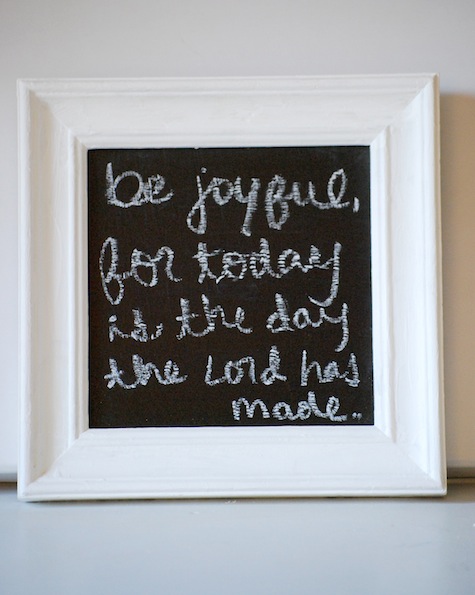 be joyful,
for today
is the day
the Lord has
made..